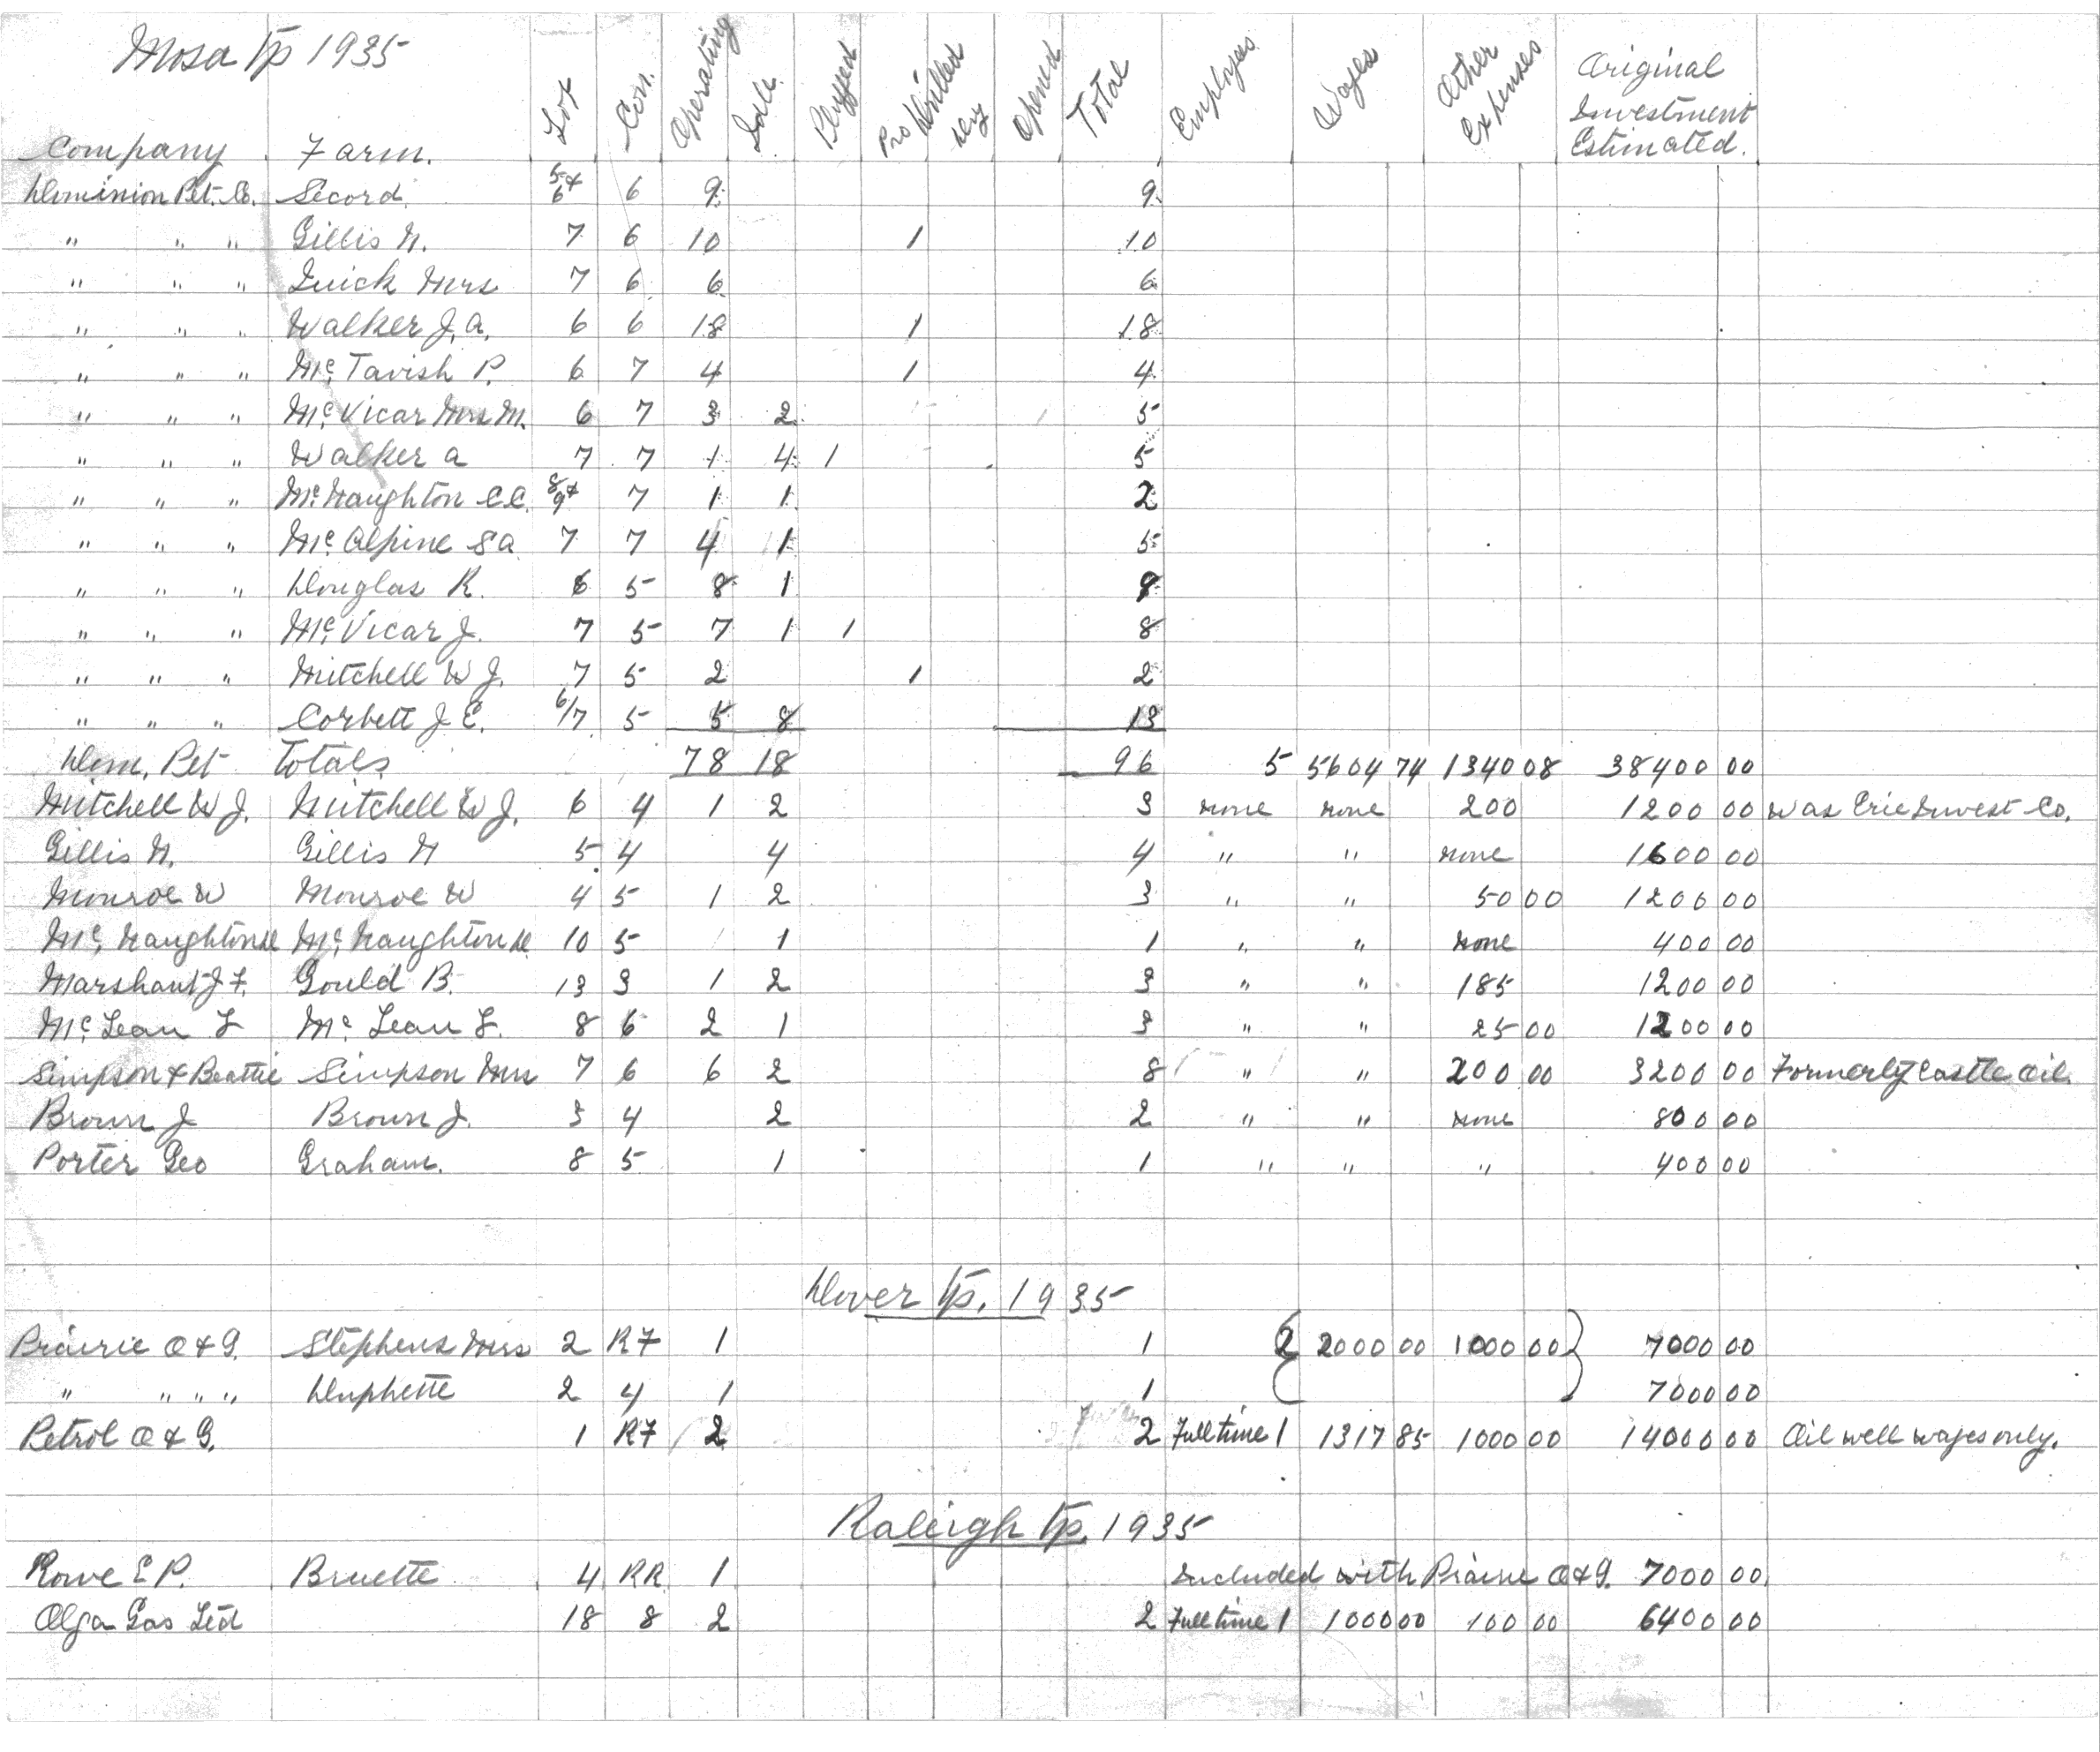 Mosa Tp 1935
Company Farm. Lot Con. Operating Idle Plugged Drilled Pro Dry Opened Total Employees Wages Other Expenses Original Investment Estimated.
Dominion Pet. Co. Secord. 5+6 6 9 9
" " " Gillis N. 7 6 10 1 10
" " " Quick Mrs 7 6 6 6
" " " Walker J.A. 6 6 18 1 18
" " " Mc Tavish P. 6 7 4 1 4
" " " Mc Vicar Mrs M. 6 7 3 2 5
" " " Walker A 7 7 1 4 1 5
" " " Mc Naughton C.C. 8+9 7 1 1 2
" " " Mc Alpine S A 7 7 4 1 5
" " " Douglas R. 6 5 8 1 9
" " " Mc Vicar J. 7 5 7 1 1 8
" " " Mitchell W J. 7 5 2 1 2
" " " Corbett J E. 6/7 5 5 8 13
Dom. Pet Totals 78 18 96 5 5604 74 1340 08 38400 00
Mitchell W J. Mitchell W J. 6 4 1 2 3 none none 200 1200 00 Was Erie Invest Co.
Gillis N. Gillis N 5 4 4 4 " " none 1600 00
Monroe W Monroe W 4 5 1 2 3 " " 50 00 1200 00
Mc Naughton Mc Naughton 10 5 1 1 " " none 400 00
Marshant J F. Gould B. 13 3 1 2 3 " " 185 1200 00
Mc Lean L Mc Lean L. 8 6 2 1 3 " " 25 00 1200 00
Simpson & Beattie Simpson Mrs 7 6 6 2 8 " " 200 00 3200 00 Formerly Castle Oil.
Brown J Brown J. 3 4 2 2 " " none 800 00
Porter Geo Graham. 8 5 1 1 " " " 400 00
Dover Tp. 1935
Prairie O & G. Stephens Mrs 2 R7 1 1 2 2000 00 1000 00 7000 00
" " " " Duphette 2 4 1 1 7000 00
Petrol O & G. 1 R7 2 2 Full time 1 1317 85 1000 00 14000 00 Oil well wages only.
Raleigh Tp. 1935
Rowe E P. Bruette 4 RR 1 Included with Prairie O & G. 7000 00
Olga Gas Ltd 18 8 2 2 Full time 1 1000 00 100 00 6400 00